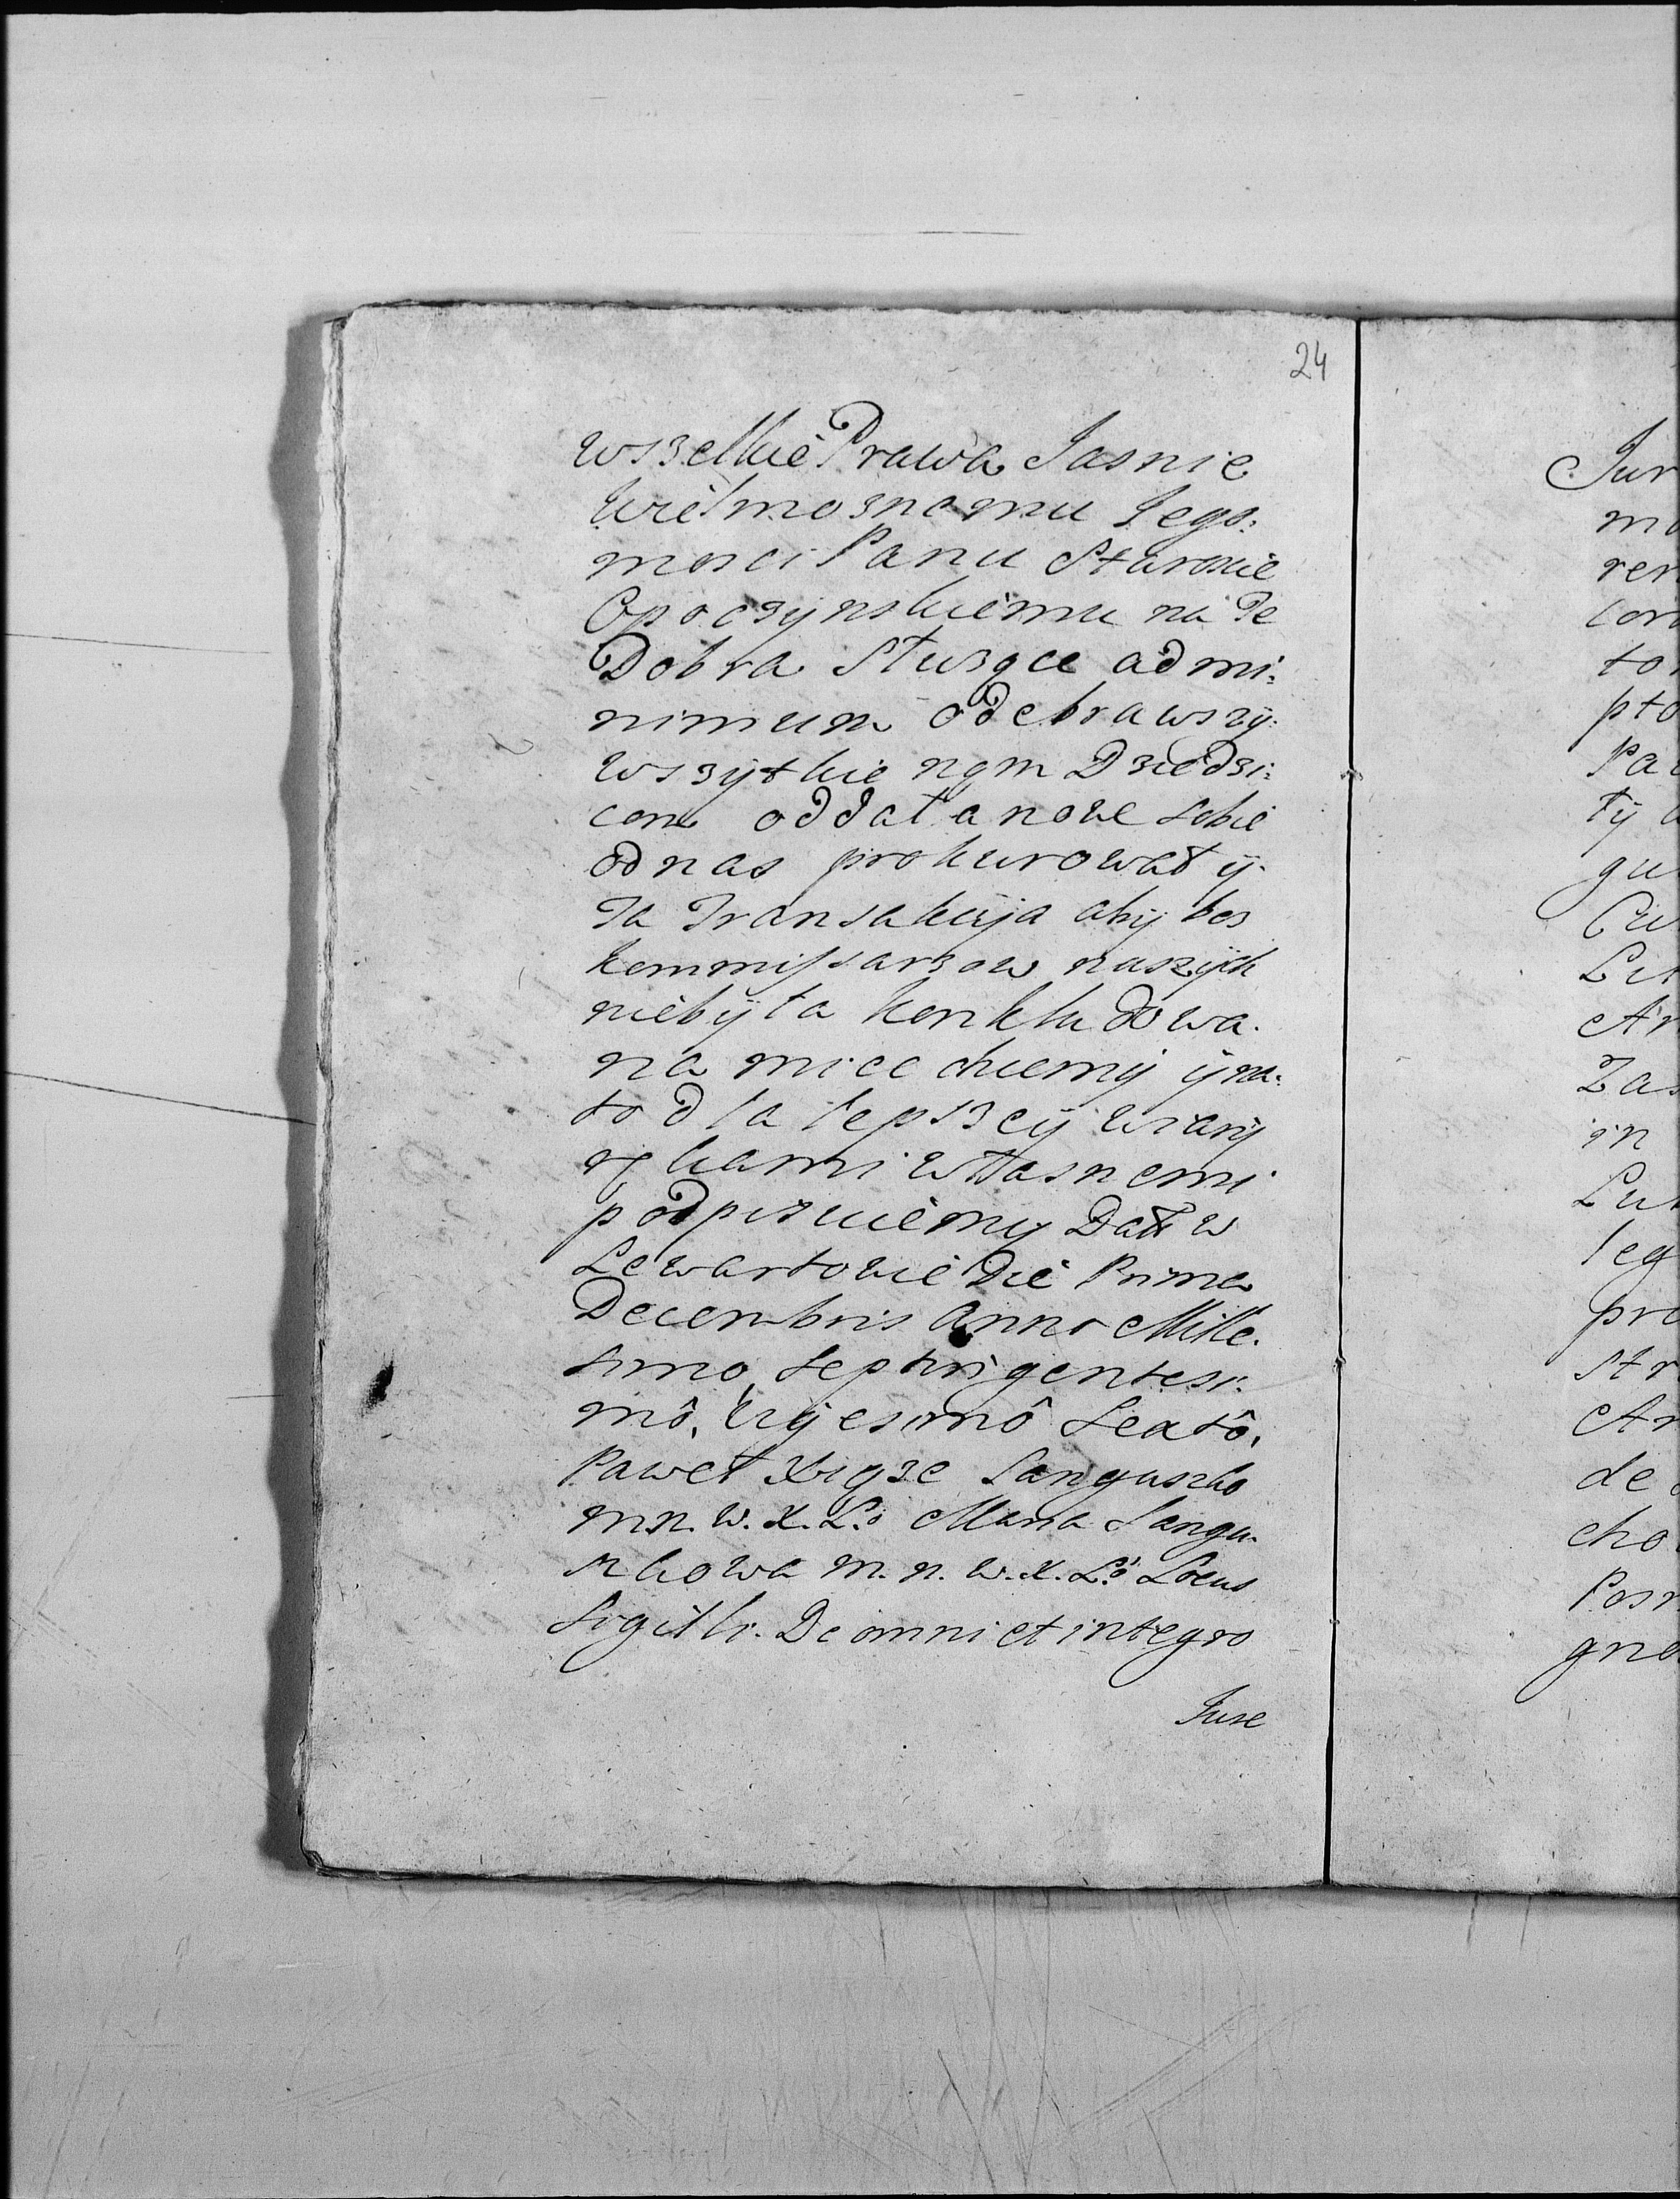 24
wszelkie Prawa Jasnie
Wielmoznemu Jego:
mosci Panu Staroscie
Opoczynskiemu na Te
Dobra Sluzące ad mi:
nimum odebrawszÿ
wszÿtkie nąm Dziedzi:
com oddał a nowe sobie
od nas prokurował ÿ
Ta Transakcÿa abÿ bes
kommissarzow naszÿch
niebÿła konkludowa.
na miec chcemÿ ÿ na:
to dla lepszeÿ wiarÿ
rękami własnemi
podpisuiemy Datt w
Lewartowie Die Prima
Decembris Anno Mille.
simo Septingentesi:
mô, Vigesimô Sextô,
Paweł Xiąze Sanguszko
m. n. W. X. L: Maria Sangu.
szkowa m. n. W. X. L: Locus
Sigilli. De omni et integro
Jure
Jur